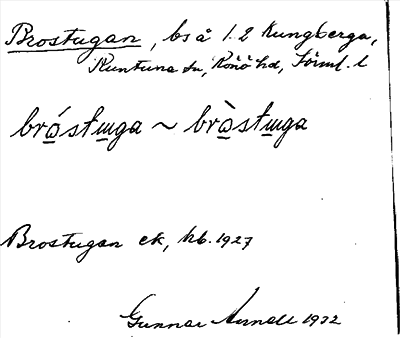 Brostugan, bs å 1.2 Kungberga,
Runtuna sn, Rönö hd, Sörml. l
bróstɯga ~ bròstɯga
Brostugan ek, hb. 1927
Gunnar 1932